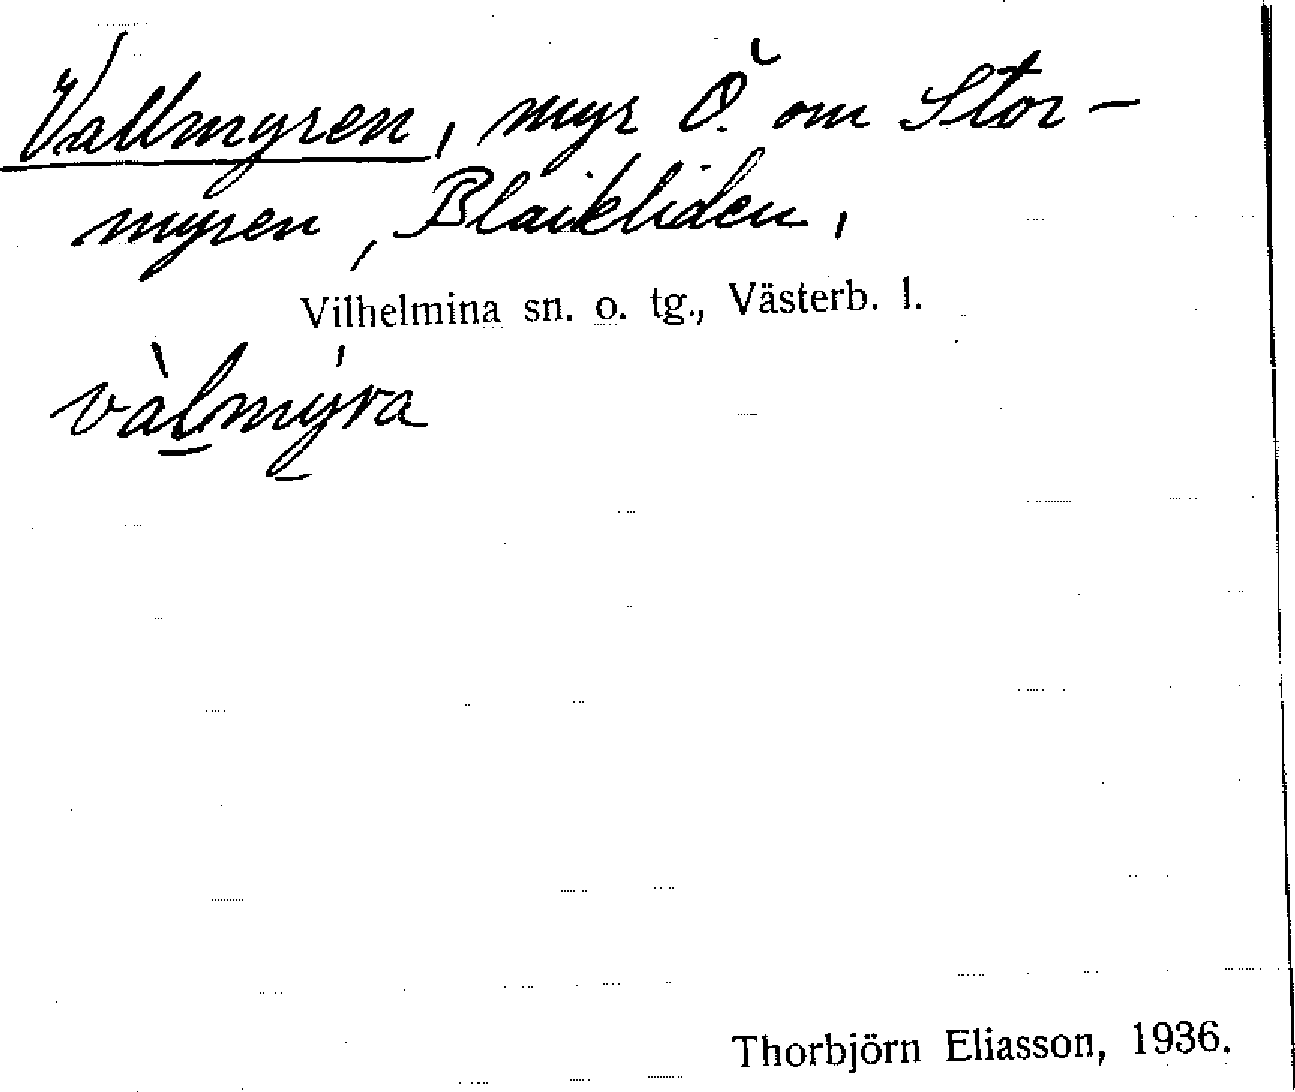 Vallmyren, myr Ö. om Stor-
myren, Blaikliden,
Vilhelmina sn. o. tg., Västerb. l.
vàlmýra
Thorbjörn Eliasson, 1936.